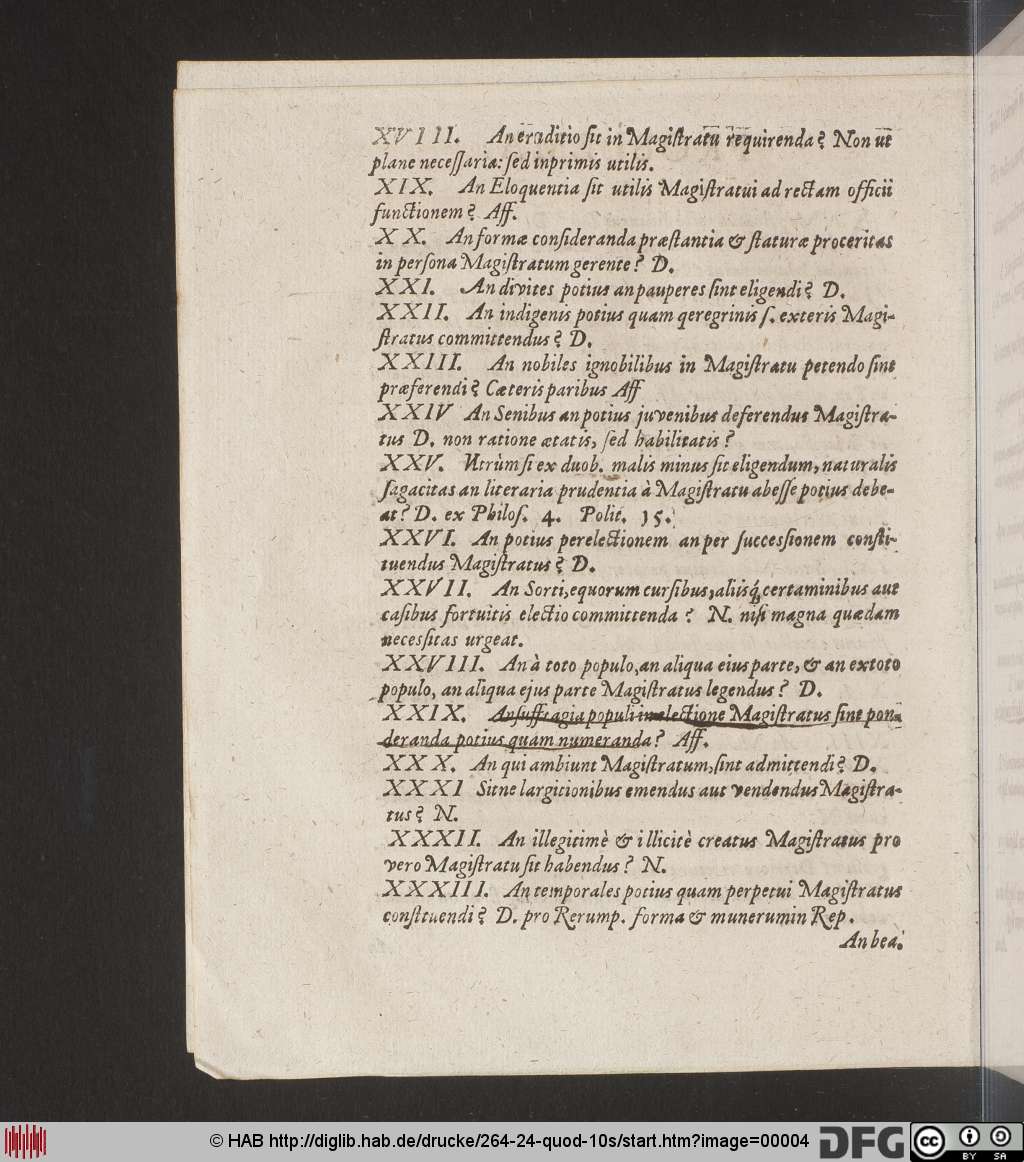 XVIII. An eruditio sit in Magistratu requirenda? Non ut
plane necessaria: sed inprimis utilis.
XIX. An Eloquentia sit utilis Magistratui ad rectam officii
functionem? Aff.
XX. An formæ consideranda præstantia & staturæ proceritas
in persona Magistratum gerente? D.
XXI. An divites potius an pauperes sint eligendi? D.
XXII. An indigenis potius quam qeregrinis s. exteris Magi-
stratus committendus? D.
XXIII. An nobiles ignobilibus in Magistratu petendo sint
præferendi? Cæteris paribus Aff
XXIV An Senibus an potius juvenibus deferendus Magistra-
tus D. non ratione ætatis, sed habilitatis?
XXV. Utrùm si ex duob. malis minus sit eligendum, naturalis
sagacitas an literaria prudentia à Magistratu abesse potius debe-
at? D. ex Philos. 4. Polit. 15.
XXVI. An potius per electionem an per successionem consti-
tuendus Magistratus? D.
XXVII. An Sorti, equorum cursibus, aliisq́; certaminibus aut
casibus fortuitis electio committenda? N. nisi magna quædam
necessitas urgeat.
XXVIII. An à toto populo, an aliqua eius parte, & an ex toto
populo, an aliqua ejus parte Magistratus legendus? D.
XXIX. An suffragia populi in electione Magistratus sint pon-
deranda potius quam numeranda? Aff.
XXX. An qui ambiunt Magistratum, sint admittendi? D.
XXXI Sitne largitionibus emendus aut vendendus Magistra-
tus? N.
XXXII. An illegitimè & illicitè creatus Magistratus pro
vero Magistratu sit habendus? N.
XXXIII. An temporales potius quam perpetui Magistratus
constituendi? D. pro Rerump. forma & munerum in Rep.
An bea.
© HAB http://diglib.hab.de/drucke/264-24-quod-10s/start.htm?image=00004
DFG
cc
BY SA